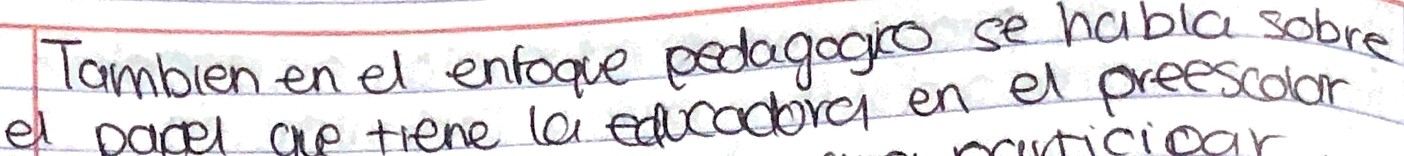 Tambien en el enfoque pedagogico se habla sobre
el papel que tiene la educadora en el preescolar
participar